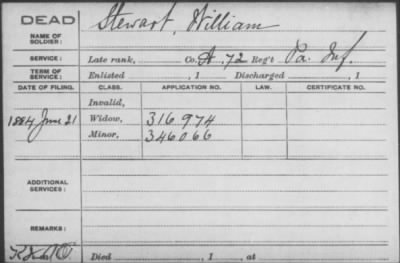 DEAD
NAME OF SOLDIER: Stewart, William
SERVICE: Late rank, Co. A. 72 Reg't Pa. Inf.
TERM OF SERVICE: Enlisted , 1 Discharged , 1
DATE OF FILING. CLASS. APPLICATION NO. LAW. CERTIFICATE NO.
Invalid,
1884 June 21 Widow, 316 974
Minor, 346066
ADDITIONAL SERVICES:
REMARKS:
Died , 1 , at